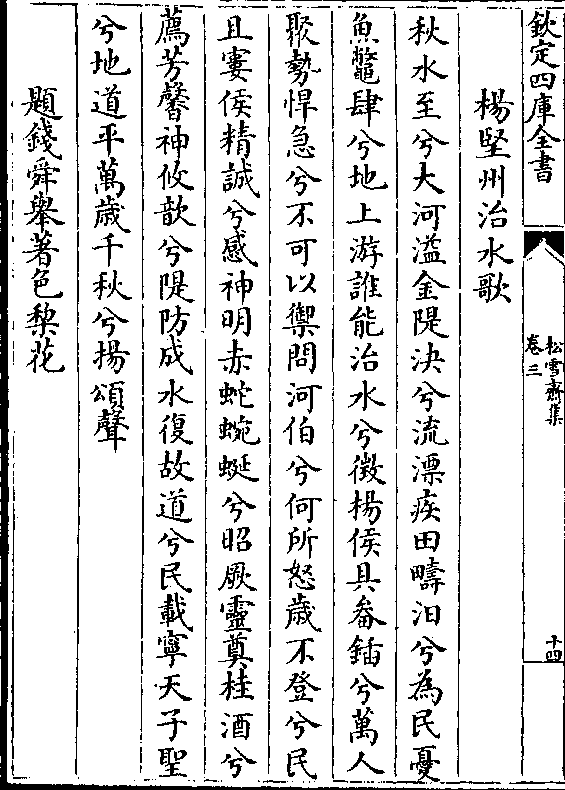 欽定四庫全書
松雪齋集
卷三
十四
楊堅州治水歌
秋水至兮大河溢金隄決兮流漂疾田疇汨兮為民憂
魚鼈肆兮地上游誰能治水兮徵楊侯具畚鍤兮萬人
聚勢悍急兮不可以禦問河伯兮何所怒歲不登兮民
且寠侯精誠兮感神明赤蛇蜿蜒兮昭厥靈奠桂酒兮
薦芳馨神攸歆兮隄防成水復故道兮民載寧天子聖
兮地道平萬歲千秋兮揚頌聲
題錢舜舉著色棃花